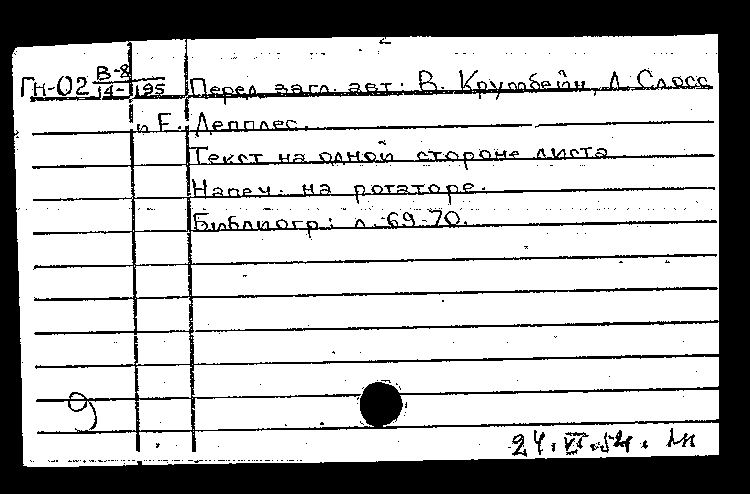 2
ГН-02 В-8/14-195 Перед загл. авт: В. Крумбейн, Л Слосс
и Е. Депплес.
Текст на одной стороне листа
Напеч. на ротаторе.
Библиогр: л. 69-70.
9
24.VI.54.